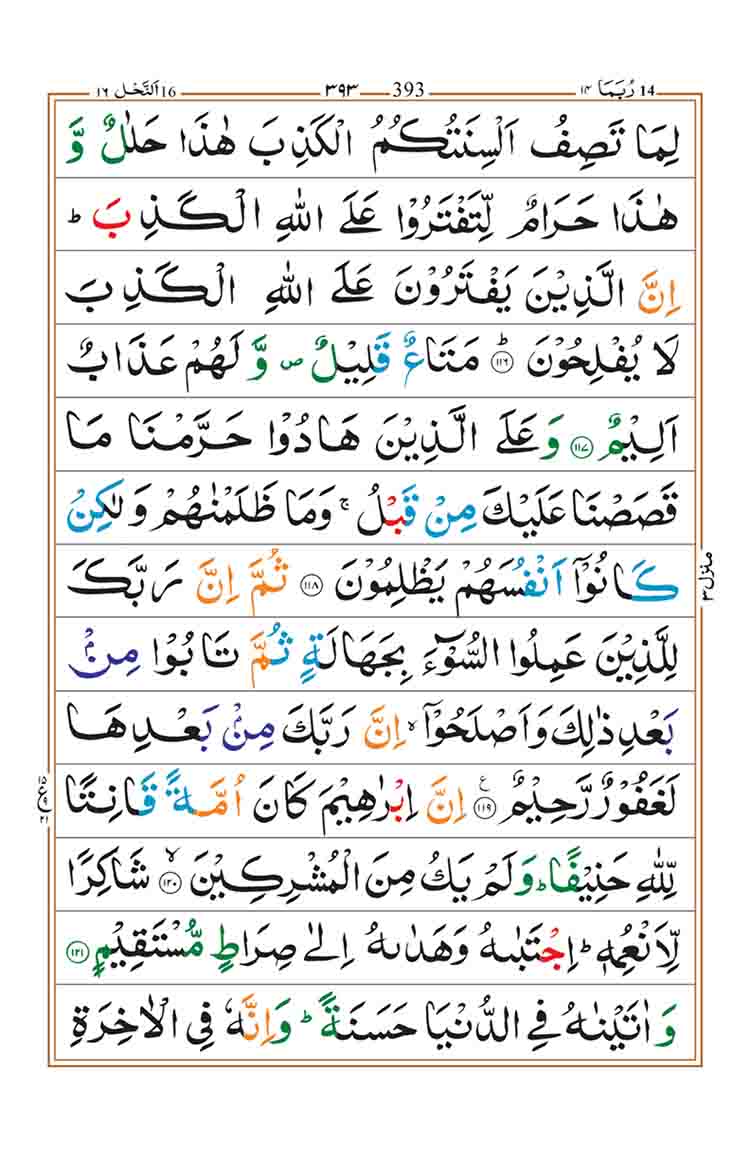 14 رُبَمَا ١٤ 393 ٣٩٣ 16 اَلنَّحْل ١٦
لِمَا تَصِفُ اَلْسِنَتُكُمُ الْكَذِبَ هٰذَا حَلٰلٌ وَّ
هٰذَا حَرَامٌ لِّتَفْتَرُوْا عَلَى اللّٰهِ الْكَذِبَ ؕ
اِنَّ الَّذِيْنَ يَفْتَرُوْنَ عَلَى اللّٰهِ الْكَذِبَ
لَا يُفْلِحُوْنَ ؕ ﴿۱۱۶﴾ مَتَاعٌ قَلِيْلٌ ۪ وَّ لَهُمْ عَذَابٌ
اَلِيْمٌ ﴿۱۱۷﴾ وَ عَلَى الَّذِيْنَ هَادُوْا حَرَّمْنَا مَا
قَصَصْنَا عَلَيْكَ مِنْ قَبْلُ ۚ وَمَا ظَلَمْنٰهُمْ وَلٰكِنْ
كَانُوْۤا اَنْفُسَهُمْ يَظْلِمُوْنَ ﴿۱۱۸﴾ ثُمَّ اِنَّ رَبَّكَ
لِلَّذِيْنَ عَمِلُوا السُّوْٓءَ بِجَهَالَةٍ ثُمَّ تَابُوْا مِنْۢ
بَعْدِ ذٰلِكَ وَاَصْلَحُوْۤا ۙ اِنَّ رَبَّكَ مِنْۢ بَعْدِهَا
لَغَفُوْرٌ رَّحِيْمٌ ﴿۱۱۹﴾ ع اِنَّ اِبْرٰهِيْمَ كَانَ اُمَّةً قَانِتًا
لِّلّٰهِ حَنِيْفًا ؕ وَلَمْ يَكُ مِنَ الْمُشْرِكِيْنَ ﴿۱۲۰﴾ ۙ شَاكِرًا
لِّاَنْعُمِهٖ ؕ اِجْتَبٰىهُ وَهَدٰىهُ اِلٰى صِرَاطٍ مُّسْتَقِيْمٍ ﴿۱۲۱﴾
وَ اٰتَيْنٰهُ فِي الدُّنْيَا حَسَنَةً ؕ وَاِنَّهٗ فِي الْاٰخِرَةِ
منزل ٣
ع